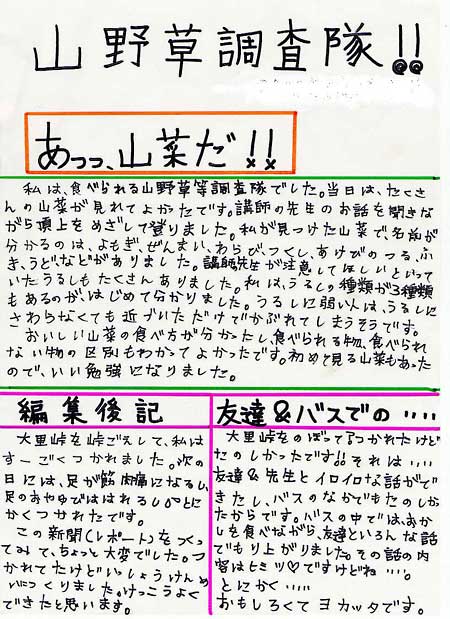 山野草調査隊!!
あっっ、山菜だ!!
私は、食べられる山野草等調査隊でした。当日は、たくさ
んの山菜が見れてよかったです。講師の先生のお話を聞きな
がら頂上をめざして登りました。私が見つけた山菜で、名前が
分かるのは、よもぎ、ぜんまい、わらび、つくし、あけびのつる、ふ
き、うどなどがありました。講師先生が注意してほしいといって
いたうるしもたくさんありました。私は、うるしの種類が3種類
もあるのが、はじめて分かりました。うるしに弱い人は、うるしに
さわらなくても近づいただけでかぶれてしまうそうです。
おいしい山菜の食べ方が分かたし、食べられる物、食べられ
ない物の区別もわかてよかったです。初めて見る山菜もあった
ので、いい勉強になりました。
編集後記
大里峠を峠ごえして、私は
すーごくつかれました。次の
日には、足が筋肉痛になるし、
足のおやゆびははれるしoooとに
かくつかれたです。
この新聞(レポート)をつくっ
てみて、ちょっと大変でした。つ
かれてたけどいっしょうけんめ
いにつくりました。けっこうよく
できたと思います。
友達&バスでの‥‥
大里峠をのぼってつかれたけど
たのしかったです!!それは‥‥
友達&先生とイロイロな話がで
きたし、バスのなかでもたのしか
たからです。バスの中では、おか
しを食べながら、友達といろんな話
でもり上がりました。その話の内
容はヒミツ♡ですけどね…。
とにかく‥‥‥
おもしろくてヨカッタです。